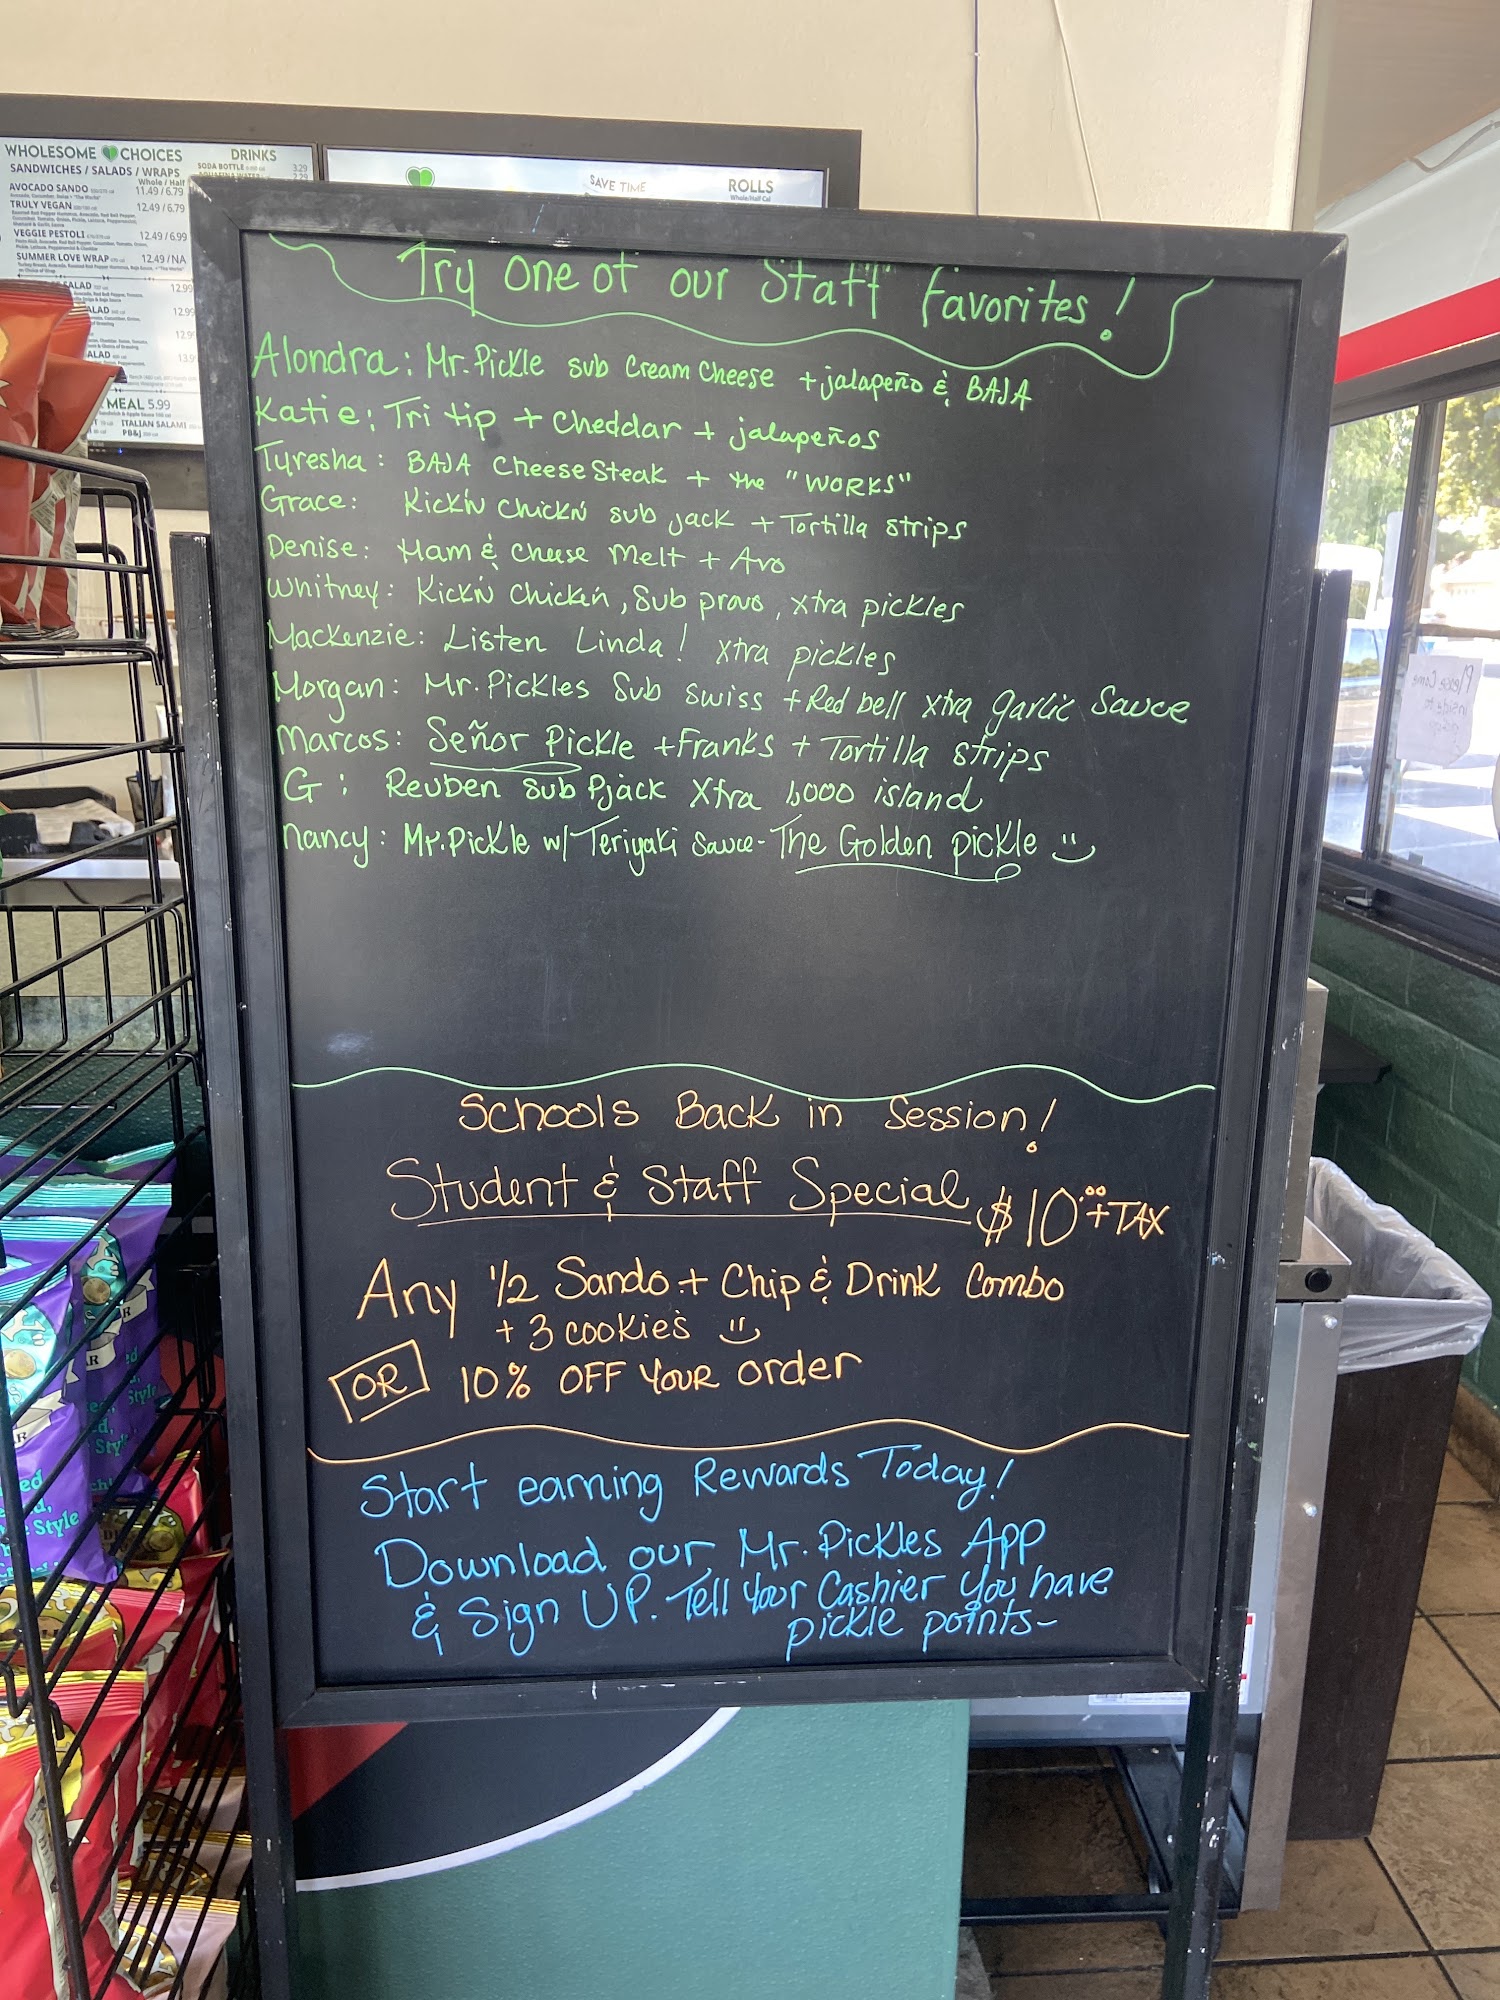 WHOLESOME CHOICES
SANDWICHES / SALADS / WRAPS
Whole / Half
AVOCADO SANDO 11.49 / 6.79
TRULY VEGAN 12.49 / 6.79
VEGGIE PESTOLI 12.49 / 6.99
SUMMER LOVE WRAP 12.49 / NA
SALAD 12.99
ALAD 12.9
12.9
ALAD 13.9
MEAL 5.99
ITALIAN SALAMI
PB&J
DRINKS
SODA BOTTLE 3.29
SAVE TIME
ROLLS
Whole/Half Cal
Try one of our "Staff" favorites!
Alondra: Mr. Pickle sub Cream Cheese + jalapeño & BAJA
Katie: Tri tip + Cheddar + jalapeños
Tyresha: BAJA CheeseSteak + the "WORKS"
Grace: Kick'N Chick'N sub jack + Tortilla strips
Denise: Ham & Cheese Melt + Avo
Whitney: Kick'N Chick'n, Sub provo, xtra pickles
Mackenzie: Listen Linda! xtra pickles
Morgan: Mr. Pickles Sub swiss + Red bell xtra garlic Sauce
Marcos: Señor Pickle + Franks + Tortilla strips
G: Reuben sub Pjack Xtra 1,000 island
Nancy: Mr. Pickle w/ Teriyaki Sauce - The Golden pickle
Schools Back in Session!
Student & Staff Special $10.00 + TAX
Any 1/2 Sando + Chip & Drink Combo
+ 3 cookies
OR 10% OFF YOUR order
Start earning Rewards Today!
Download our Mr. Pickles App
& Sign UP. Tell Your Cashier you have
pickle points-
Please Come
inside to
Style
Style